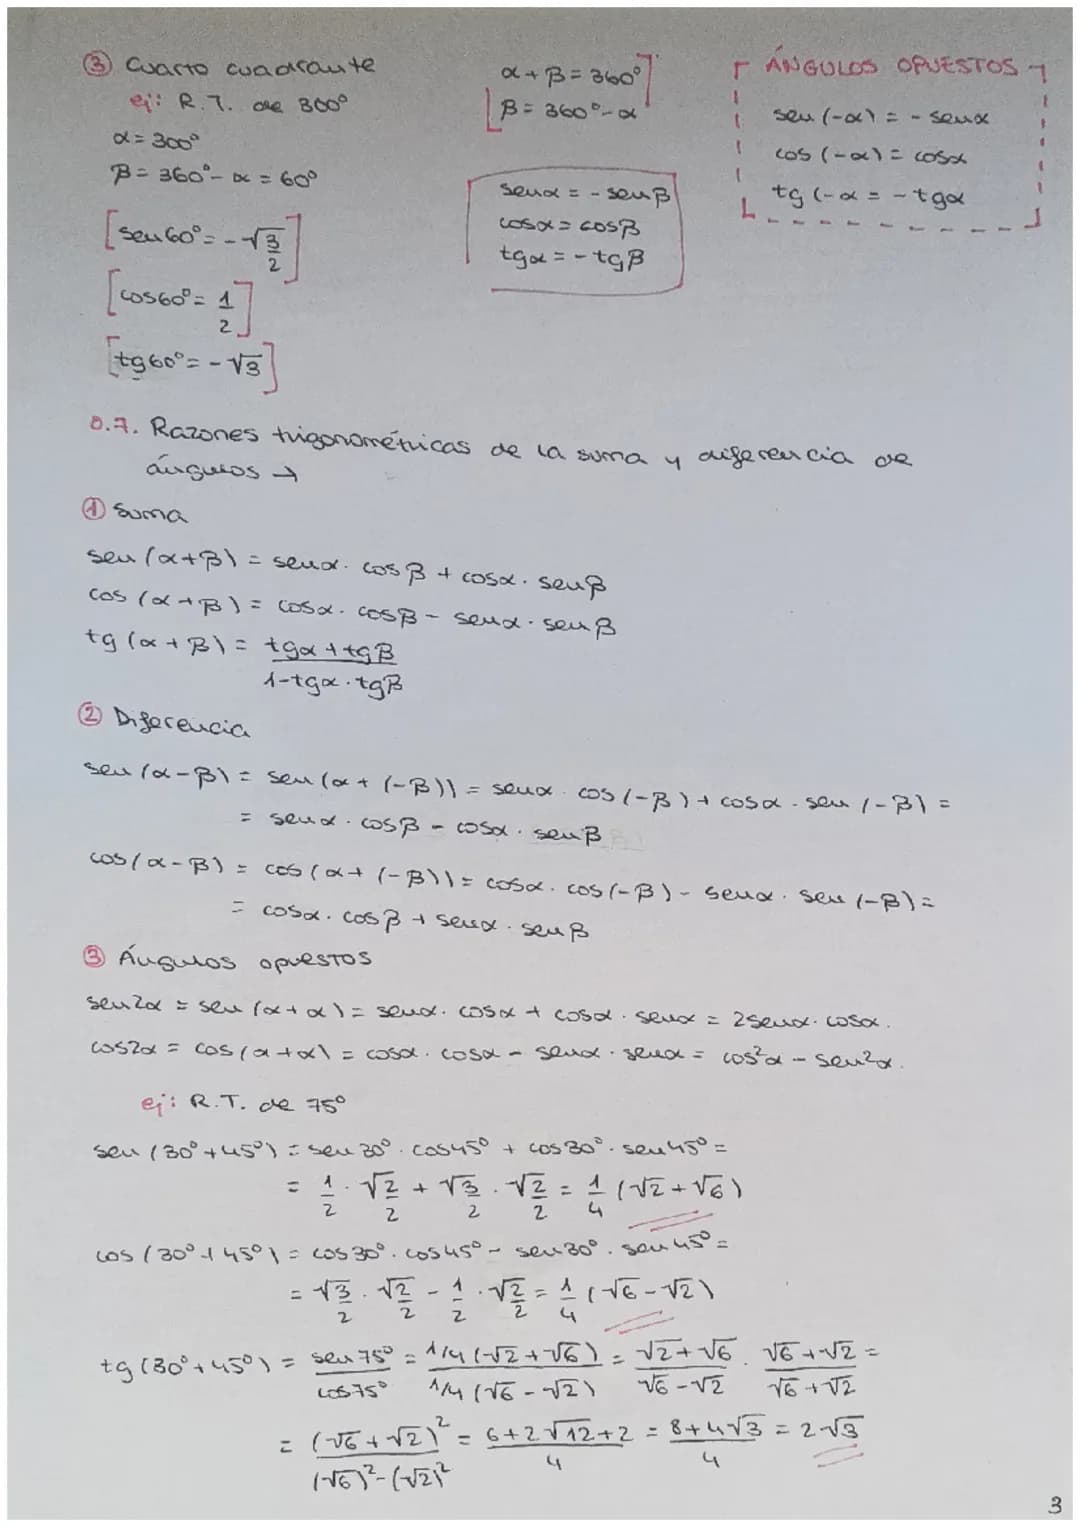 ③ Cuarto cuadrante
ej: R.T. de 300º
α = 300º
β = 360º - α = 60º
[sen 60º = -√3/2]
[cos 60º = 1/2]
[tg 60º = -√3]
α + β = 360º
β = 360º - α
sen α = - sen β
cos α = cos β
tg α = - tg β
ÁNGULOS OPUESTOS
sen (-α) = - sen α
cos (-α) = cos α
tg (-α = - tg α
0.7. Razones trigonométricas de la suma y diferencia de
ángulos →
① Suma
sen (α+β) = sen α · cos β + cos α · sen β
cos (α+β) = cos α · cos β - sen α · sen β
tg (α+β) = (tg α + tg β)/(1 - tg α · tg β)
② Diferencia
sen (α-β) = sen (α + (-β)) = sen α · cos (-β) + cos α · sen (-β) =
= sen α · cos β - cos α · sen β
cos (α-β) = cos (α + (-β)) = cos α · cos (-β) - sen α · sen (-β) =
= cos α · cos β + sen α · sen β
③ Ángulos opuestos
sen 2α = sen (α+α) = sen α · cos α + cos α · sen α = 2 sen α · cos α.
cos 2α = cos (α+α) = cos α · cos α - sen α · sen α = cos²α - sen²α.
ej: R.T. de 75º
sen (30º + 45º) = sen 30º · cos 45º + cos 30º · sen 45º =
= 1/2 · √2/2 + √3/2 · √2/2 = 1/4 (√2 + √6)
cos (30º + 45º) = cos 30º · cos 45º - sen 30º · sen 45º =
= √3/2 · √2/2 - 1/2 · √2/2 = 1/4 (√6 - √2)
tg (30º + 45º) = sen 75º/cos 75º = 1/4 (√2 + √6)/1/4 (√6 - √2) = (√2 + √6)/(√6 - √2) · (√6 + √2)/(√6 + √2) =
= (√6 + √2)²/((√6)² - (√2)²) = (6 + 2√12 + 2)/4 = (8 + 4√3)/4 = 2√3
3